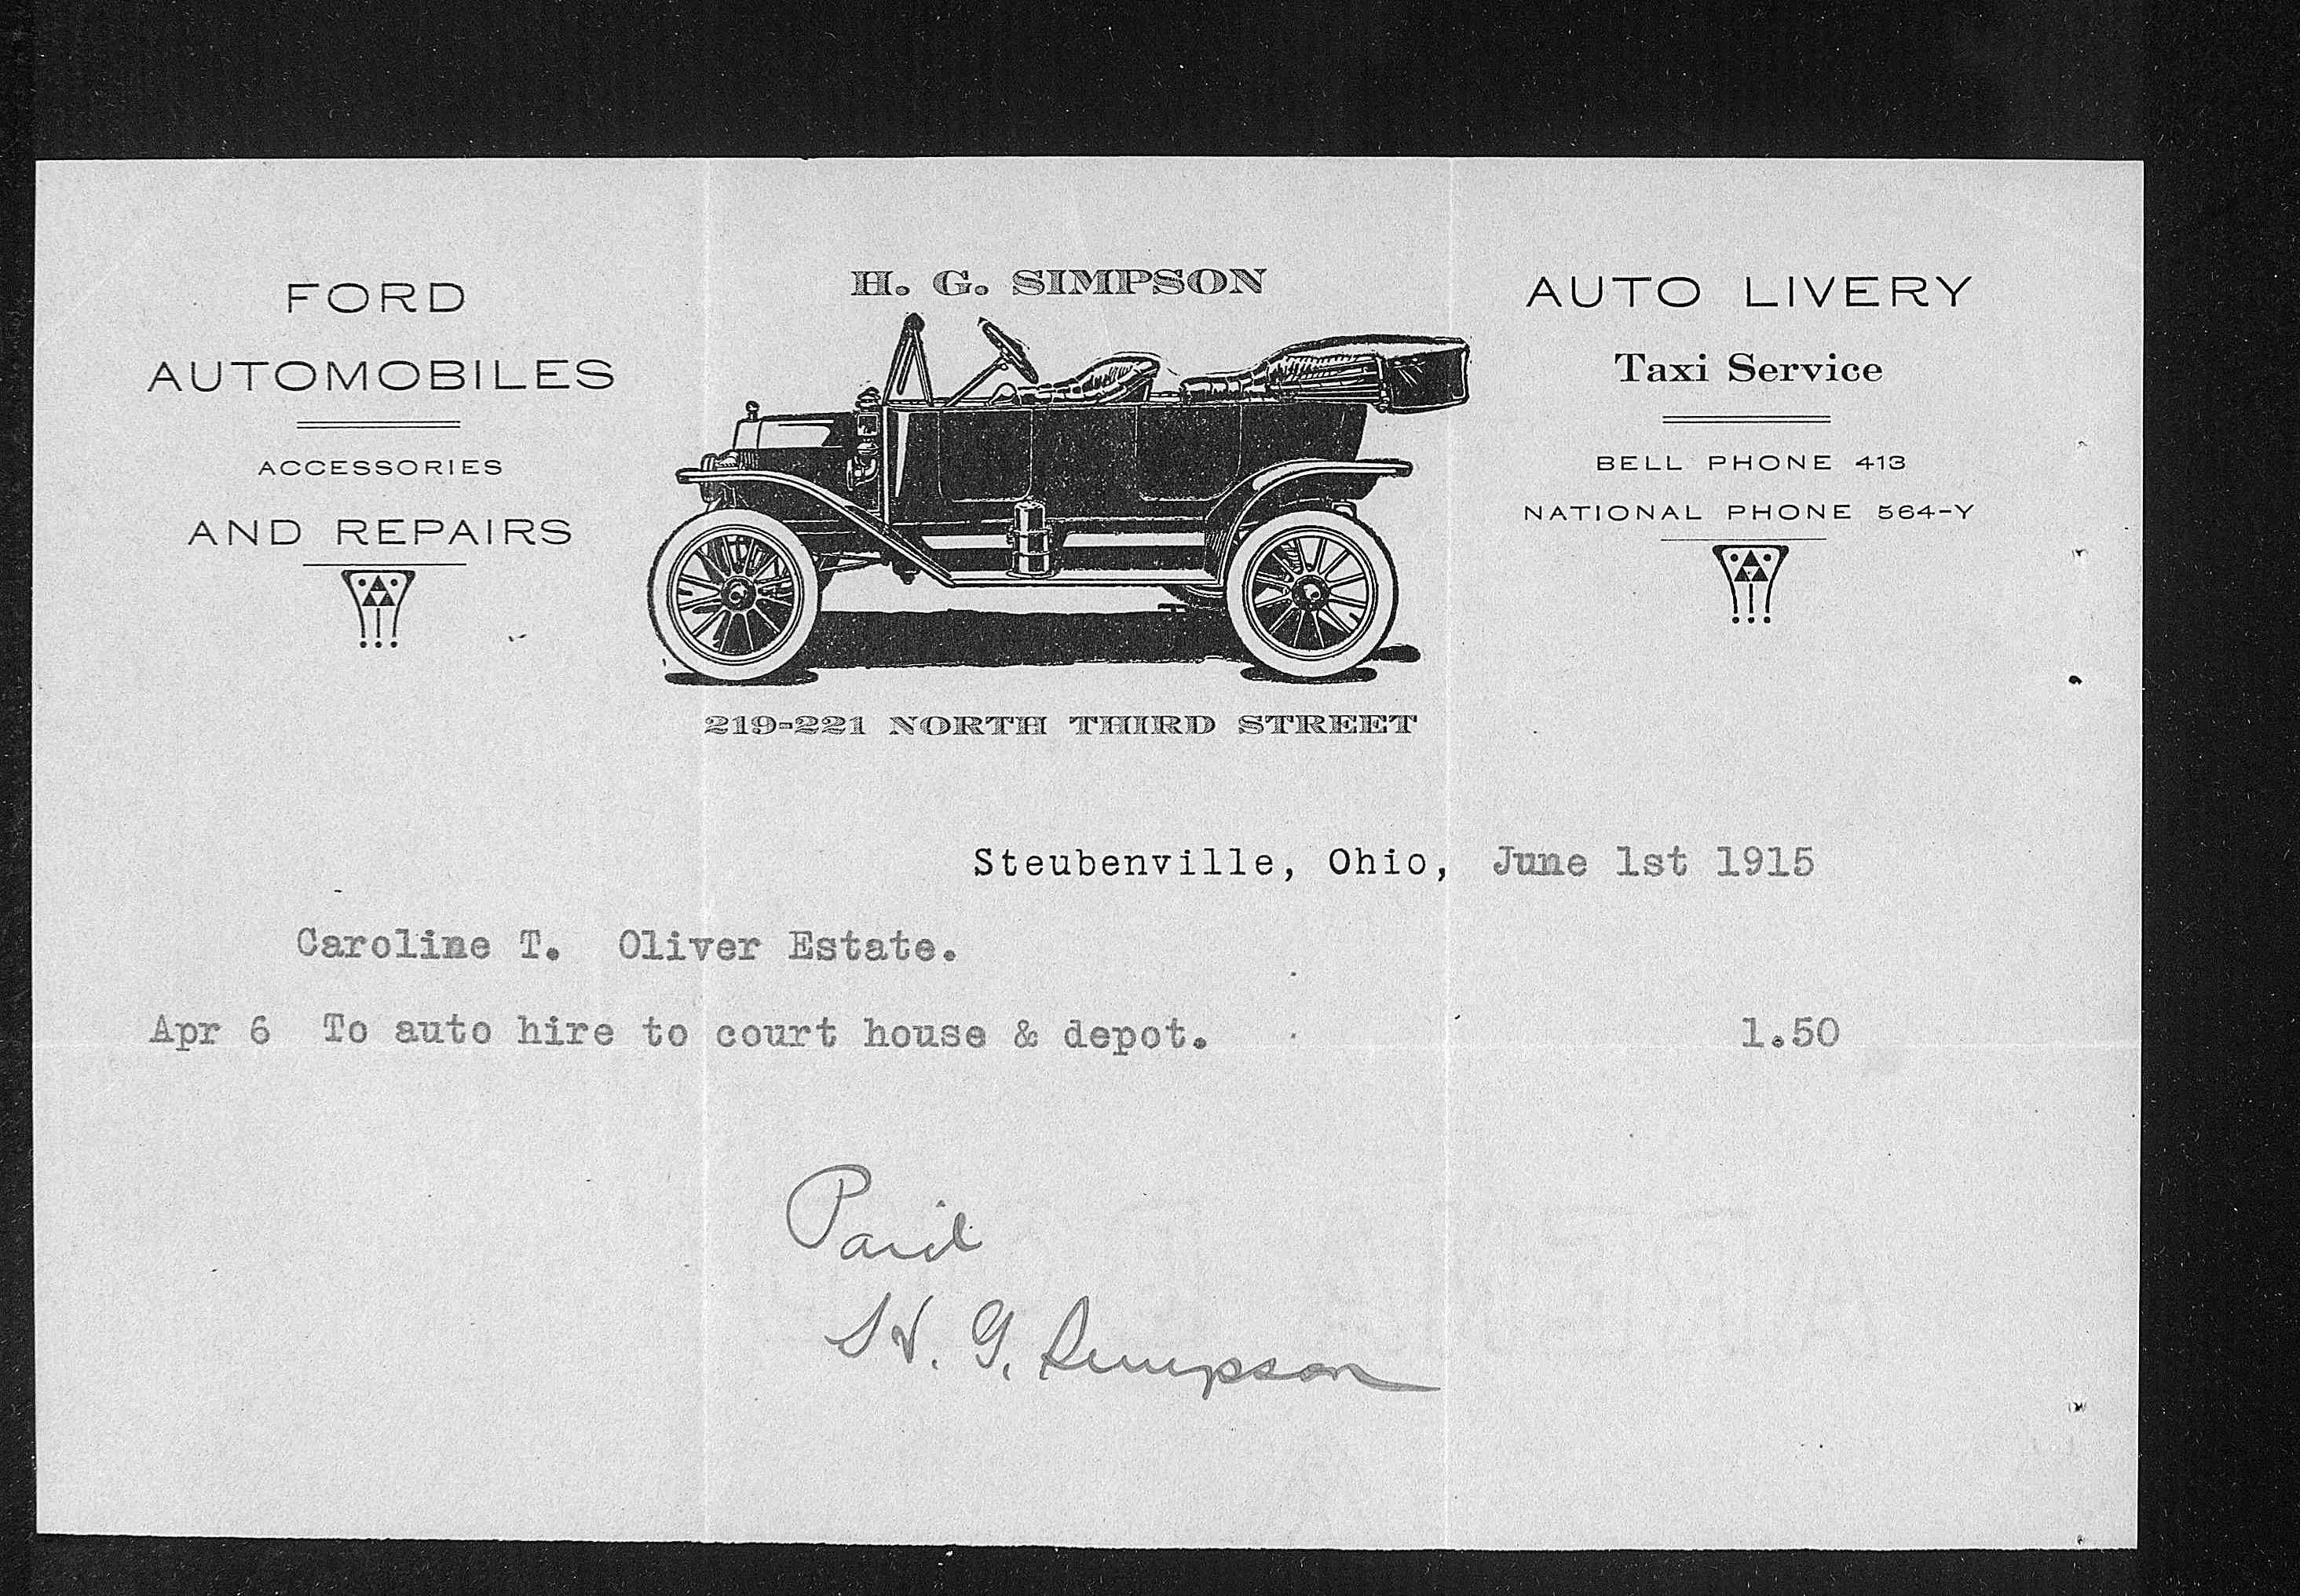 H. G. SIMPSON
FORD
AUTOMOBILES
ACCESSORIES
AND REPAIRS
AUTO LIVERY
Taxi Service
BELL PHONE 413
NATIONAL PHONE 564-Y
219-221 NORTH THIRD STREET
Steubenville, Ohio, June 1st 1915
Caroline T. Oliver Estate.
Apr 6 To auto hire to court house & depot. 1.50
Paid
H. G. Simpson